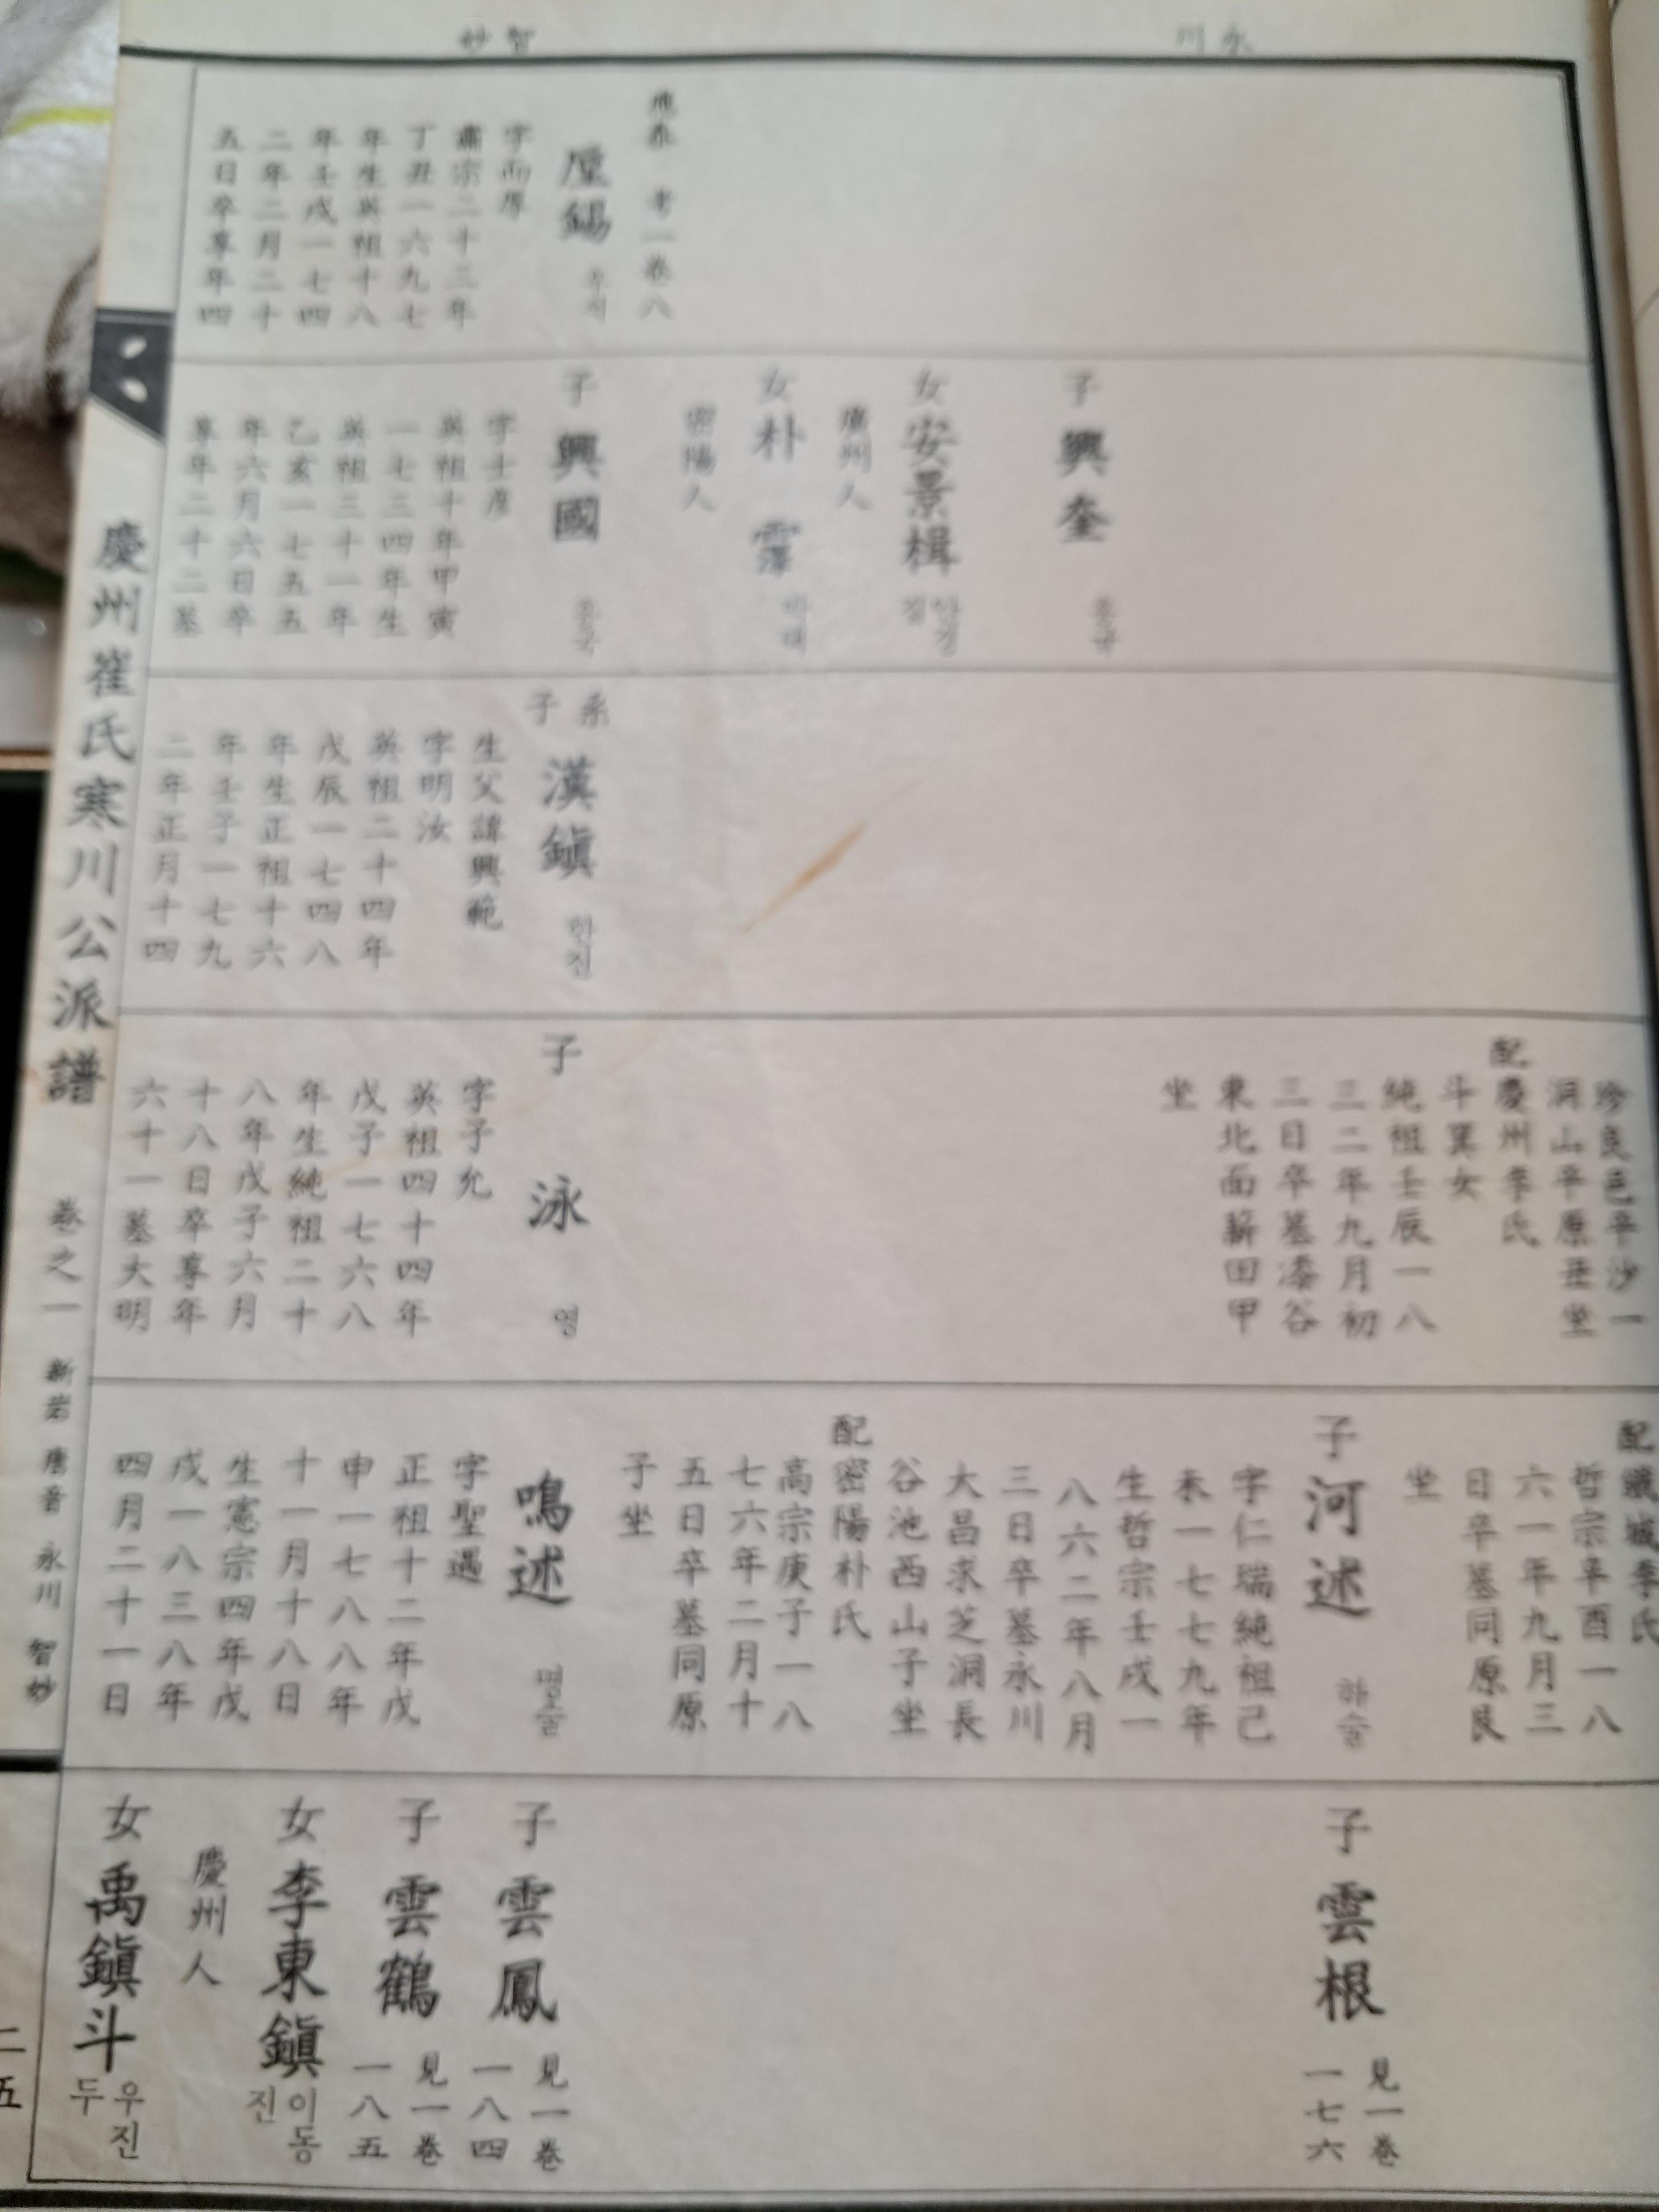 永川
智妙
考一卷八
垕錫
字而厚
肅宗二十三年
丁丑一六九七
年生英祖十八
年壬戌一七四
二年二月二十
五日卒享年四
子 興奎 흥규
女 安景楫 안경집
廣州人
女 朴霔
密陽人
子 興國 흥국
字士彦
英祖十年甲寅
一七三四年生
英祖三十一年
乙亥一七五五
年六月六日卒
享年二十二墓
系子 漢鎭 한진
生父諱興範
字明汝
英祖二十四年
戊辰一七四八
年生正祖十六
年壬子一七九
二年正月十四
珍良邑辛沙一
洞山辛原丑坐
配慶州李氏
斗巽女
純祖壬辰一八
三二年九月初
三日卒墓漆谷
東北面薪田甲
坐
子 泳 영
字子允
英祖四十四年
戊子一七六八
年生純祖二十
八年戊子六月
十八日卒享年
六十一墓大明
李氏
哲宗辛酉一八
六一年九月三
日卒墓同原艮
坐
子 河述 하술
字仁瑞純祖己
未一七七九年
生哲宗壬戌一
八六二年八月
三日卒墓永川
大昌求芝洞長
谷池西山子坐
配密陽朴氏
高宗庚子一八
七六年二月十
五日卒墓同原
子坐
鳴述 명술
字聖遇
正祖十二年戊
申一七八八年
十一月十八日
生憲宗四年戊
戌一八三八年
四月二十一日
子 雲根 見一卷一七六
子 雲鳳 見一卷一八四
子 雲鶴 見一卷一八五
女 李東鎭 이동진
慶州人
女 禹鎭斗 우진두
慶州崔氏寒川公派譜 卷之一 新岩 唐音 永川 智妙
二五